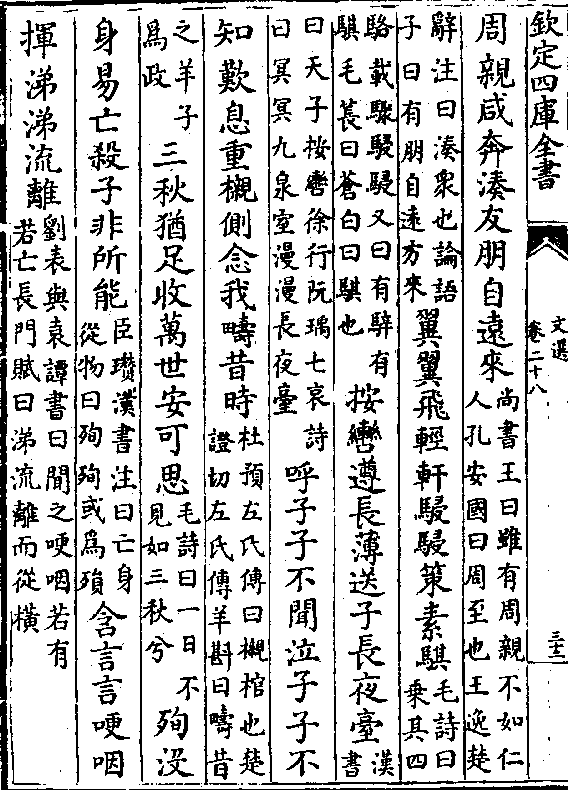 欽定四庫全書
文選
卷二十八
三十二
周親咸奔湊友朋自遠來尚書王曰雖有周親不如仁人孔安國曰周至也王逸楚
辭注曰湊衆也論語子曰有朋自遠方來翼翼飛輕軒駸駸策素騏毛詩曰乗其四
駱載驟駸駸又曰有騂有騏毛萇曰蒼白曰騏也按轡遵長薄送子長夜臺漢書
曰天子按轡徐行阮瑀七哀詩曰冥冥九泉室漫漫長夜臺呼子子不聞泣子子不
知歎息重櫬側念我疇昔時杜預左氏傳曰櫬棺也楚證切左氏傳羊斟曰疇昔
之羊子為政三秋猶足收萬世安可思毛詩曰一日不見如三秋兮殉没
身易亡殺子非所能臣瓚漢書注曰亡身從物曰殉殉或為殞含言言哽咽
揮涕涕流離劉表與袁譚書曰聞之哽咽若有若亡長門賦曰涕流離而從橫